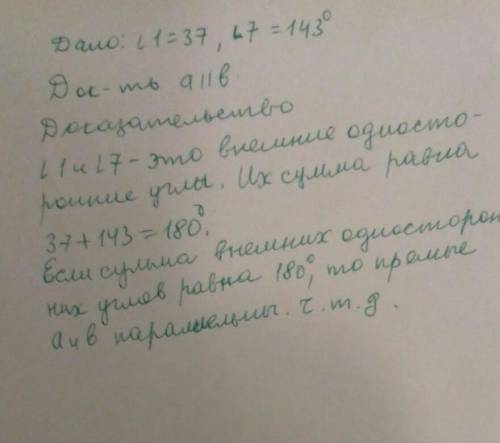 Дано: ∠1=37, ∠7=143°
Док-ть a||в
Доказательство
∠1 и ∠7 - это внешние односто-
ронние углы. Их сумма равна
37+143=180°.
Если сумма внешних односторон
них углов равна 180°, то прямые
a и в параллельны. ч.т.д.